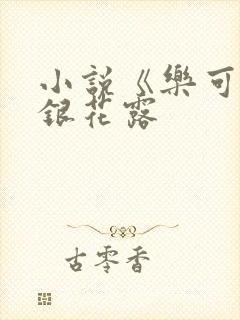 小說《樂可
銀花露
古零香